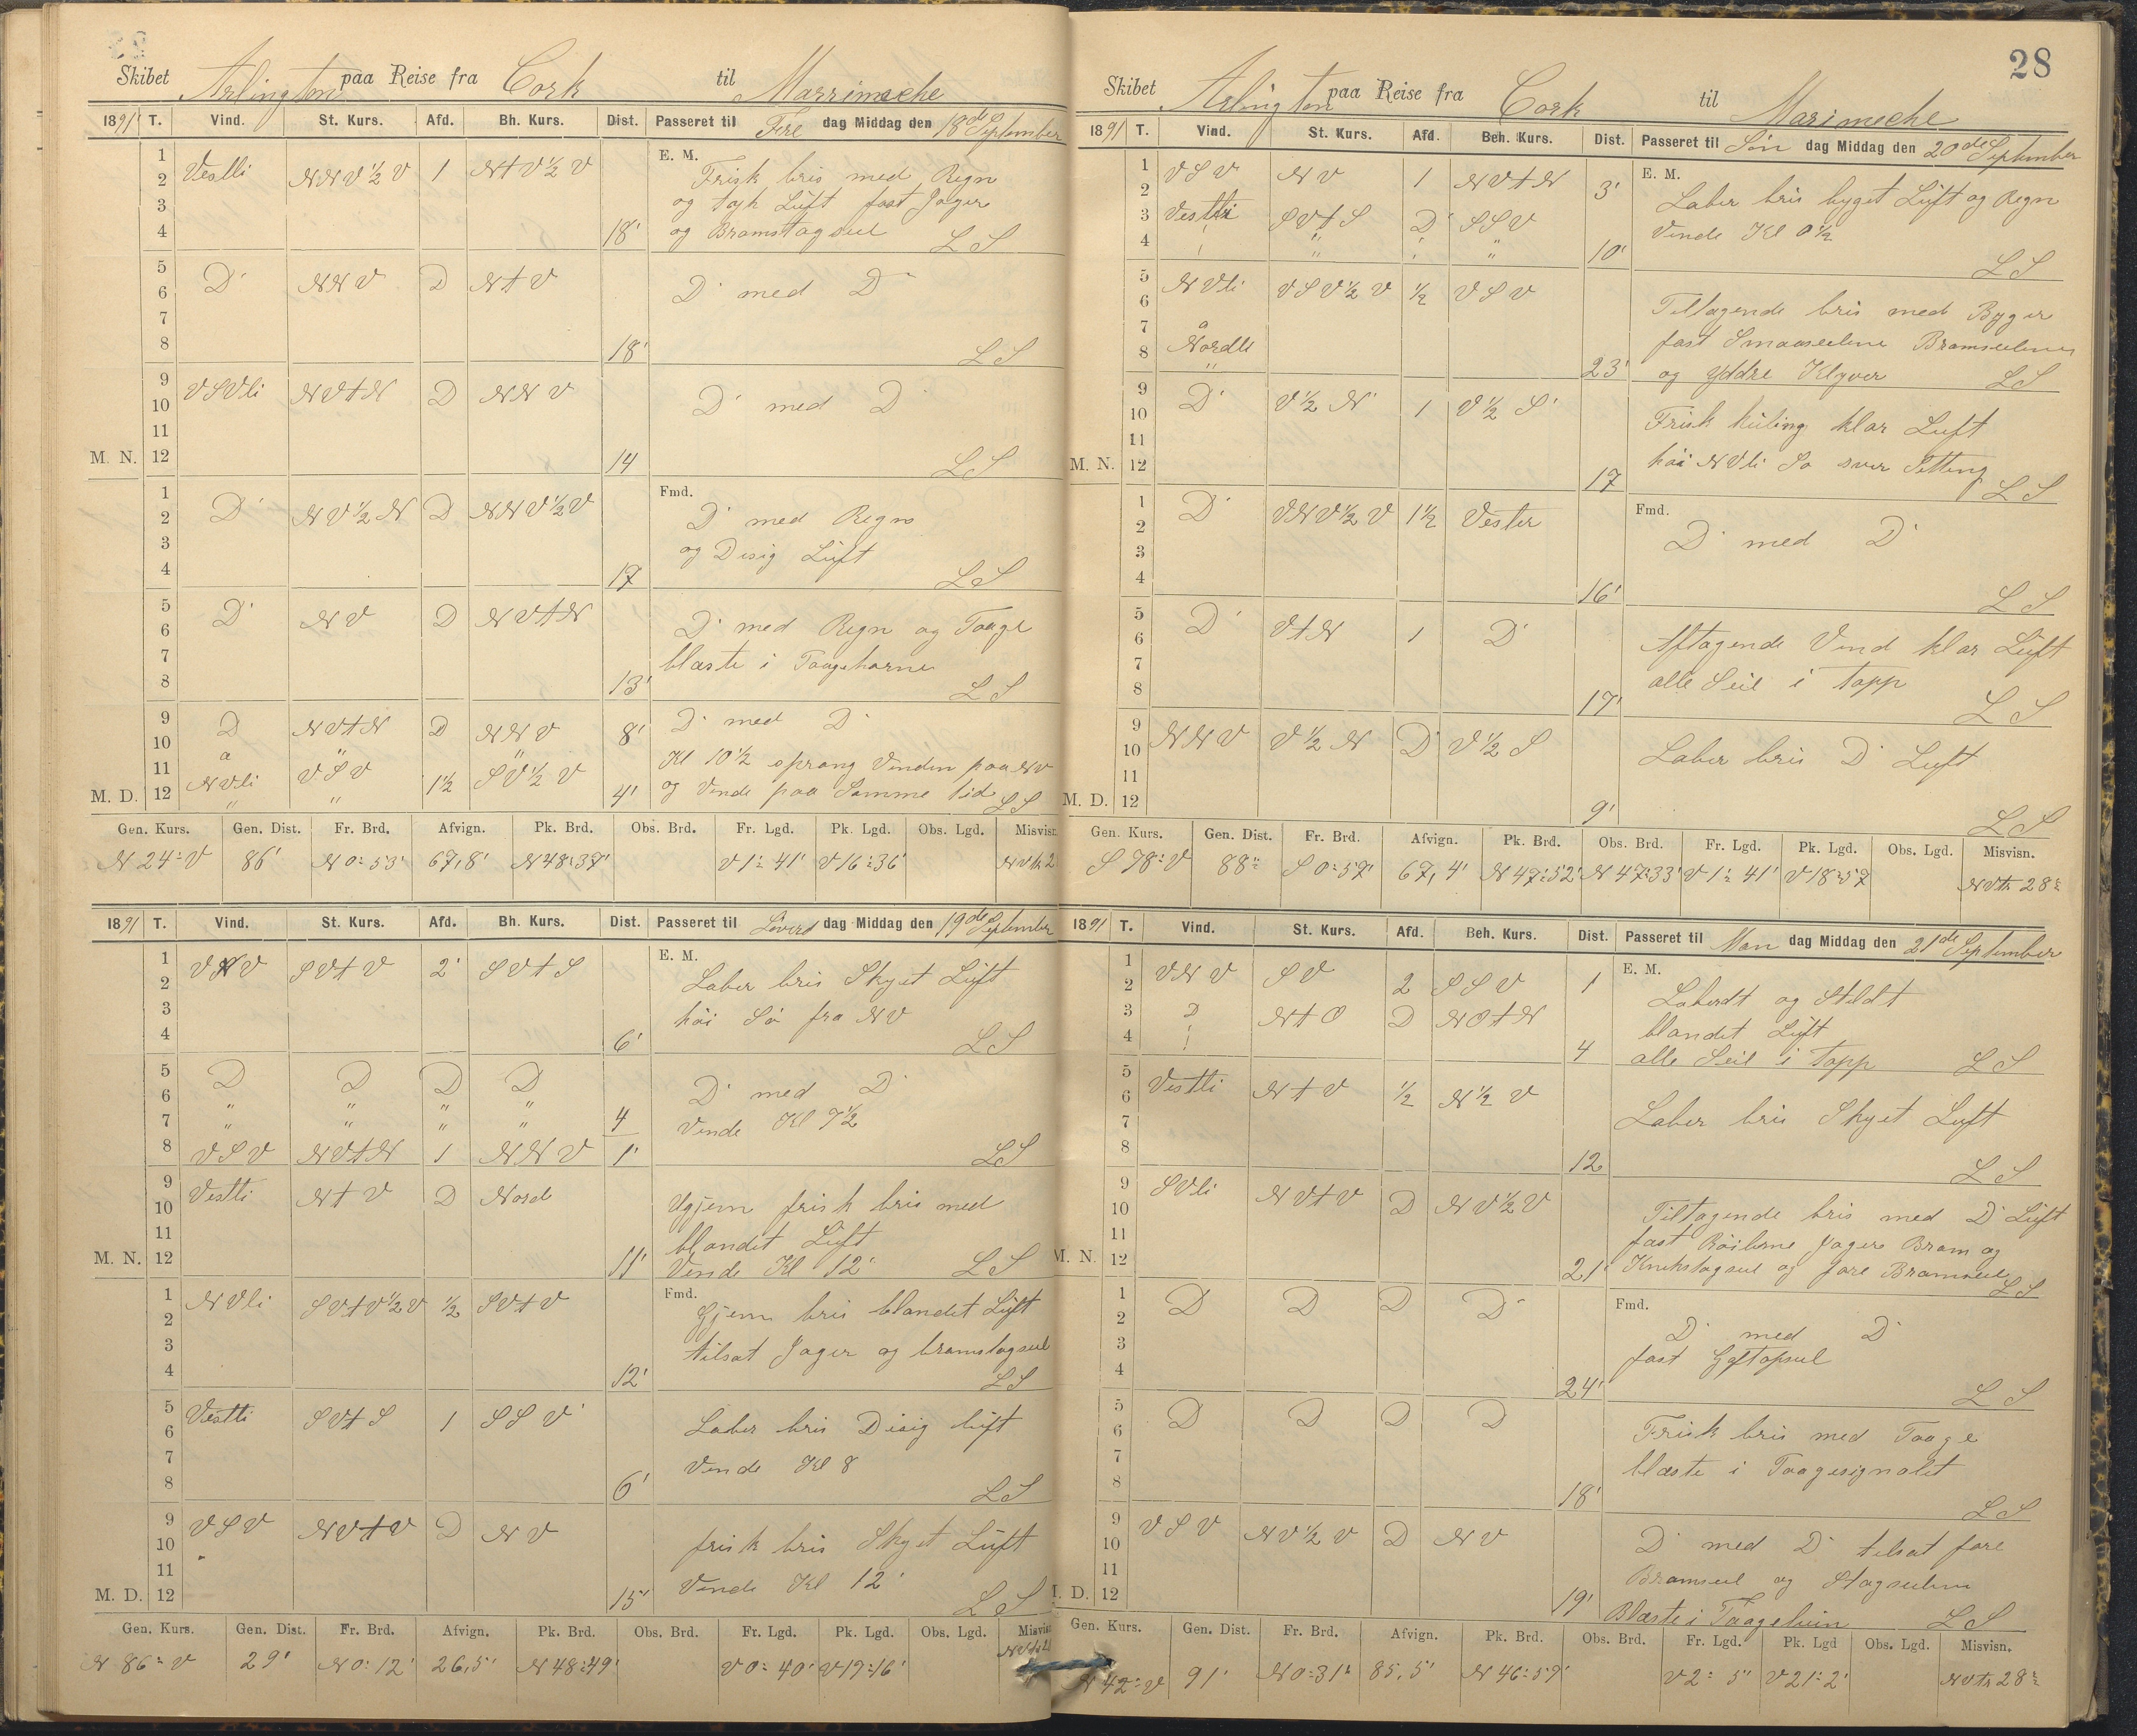 Skibet Arlington paa Reise fra Cork til Marrimeche
1891 T. Vind. St. Kurs. Afd. Bh. Kurs. Dist. Passeret til Fre dag Middag den 18de September
1 2 3 4 Vestli NNV½V 1 NtV½V 18'
E. M.
Frisk bris med Regn
og tyk Lüft fast Jager
og Bramstagseil LS
5 6 7 8 D' NNV D NtV 18'
D' med D'
LS
9 10 11 M. N. 12 VSVli NVtN D NNV 14
D' med D'
LS
1 2 3 4 D' NV½N D NNV½V 17
Fmd.
D' med Regn
og Disig Lüft
LS
5 6 7 8 D' NV D NVtN 13'
D' med Regn og Taage
blæste i Taagehorne
LS
9 10 D NVtN D NNV 8'
a " "
11 M. D. 12 NVli VSV 1½ SV½V 4'
D' med D'
Kl 10½ sprang Vinden paa NV
og Vende paa Samme tid LS
Gen. Kurs. Gen. Dist. Fr. Brd. Afvign. Pk. Brd. Obs. Brd. Fr. Lgd. Pk. Lgd. Obs. Lgd. Misvisn.
N 24° V 86' N 0° 53' 67,8' N 48° 37' V 1° 41' V 16° 36'
1891 T. Vind. St. Kurs. Afd. Bh. Kurs. Dist. Passeret til Löver dag Middag den 19de September
1 2 3 4 VNV SVtV 2' SVtS 6'
E. M.
Laber bris Skyet Lüft
höi Sö fra NV
LS
5 6 7 D D D D 4
" " " "
" " " "
8 VSV NVtN 1 NNV 1'
D' med D'
Vende Kl 7½
LS
9 10 11 M. N. 12 Vestli NtV D Nord 11'
Ujem frisk bris med
blandet Lüft
Vende Kl 12' LS
1 2 3 4 NVli SVtV½V ½ SVtV 12'
Fmd.
Gjem bris blandet Lüft
tilsat Jager og bramstagseil
LS
5 6 7 8 Vestli SVtS 1 SSV' 6'
Laber bris Disig lüft
Vende Kl 8
LS
9 10 11 M. D. 12 VSV NVtV D NV 15'
frisk bris Skyet Lüft
Vende Kl 12'
LS
Gen. Kurs. Gen. Dist. Fr. Brd. Afvign. Pk. Brd. Obs. Brd. Fr. Lgd. Pk. Lgd. Obs. Lgd.
N 86° V 29' N 0° 12' 26,5' N 48° 49' V 0° 40' V 17° 16'
28
Skibet Arlington paa Reise fra Cork til Marimeche
1891 T. Vind. St. Kurs. Afd. Beh. Kurs. Dist. Passeret til Søn dag Middag den 20de September
1 2 VSV NV 1 NVtN 3'
3 4 Vestli SVtS D' SSV 10'
" "
E. M.
Laber bris byget Lüft og Regn
Vende Kl 0½
LS
5 6 NVli VSV½V ½ VSV
7 a
8 Nordli 23'
"
Tiltagende bris med Byger
fast Smaaseilene Bramseilene
og yddre Klyver LS
9 10 11 M. N. 12 D' V½N' 1 V½S' 17
Frisk küling klar Luft
höi NVli Sø svær Setting
LS
1 2 3 4 D' VNV½V 1½ Vester 16'
Fmd.
D' med D'
LS
5 6 7 8 D' VtN 1 D' 17'
Aftagende Vind klar Lüft
alle Seil i Topp
LS
9 10 11 M. D. 12 NNV V½N D' V½S 9'
Laber bris D' Luft
LS
Gen. Kurs. Gen. Dist. Fr. Brd. Afvign. Pk. Brd. Obs. Brd. Fr. Lgd. Pk. Lgd. Obs. Lgd. Misvisn.
S 78° V 88" S 0° 57' 67,4' N 47° 52' N 47° 33' V 1° 41' V 18° 57 NVtn 28°
1891 T. Vind. St. Kurs. Afd. Beh. Kurs. Dist. Passeret til Man dag Middag den 21de September
1 2 VNV SV 2 SSV 1
3 4 D NtO D NOtN 4
E. M.
Laberdt og Stildt
blandet Lüft
alle Seil i Topp LS
5 6 7 8 Vestli NtV ½ N½V 12
Laber bris Skyet Luft
LS
9 10 11 M. N. 12 SVli NVtV D NV½V 21'
Tiltagende bris med D' Lüft
fast Röilerne Jager Bram og
Knekstagseil og fore Bramseil LS
1 2 3 4 D D D D' 24'
Fmd.
D' med D'
fast Gaftopseil
LS
5 6 7 8 D D D D 18'
Frisk bris med Taage
blæste i Taagesignalet
LS
9 10 11 M. D. 12 VSV NV½V D NV 19'
D' med D' tilsat fore
Bramseil og Stagseilene
Blæste i Taagehun LS
Gen. Kurs. Gen. Dist. Fr. Brd. Afvign. Pk. Brd. Obs. Brd. Fr. Lgd. Pk. Lgd Obs. Lgd. Misvisn.
N 42° V 91' N 0° 31' 85,5' N 46° 59' V 2° 5" V 21° 2' NVtn 28°